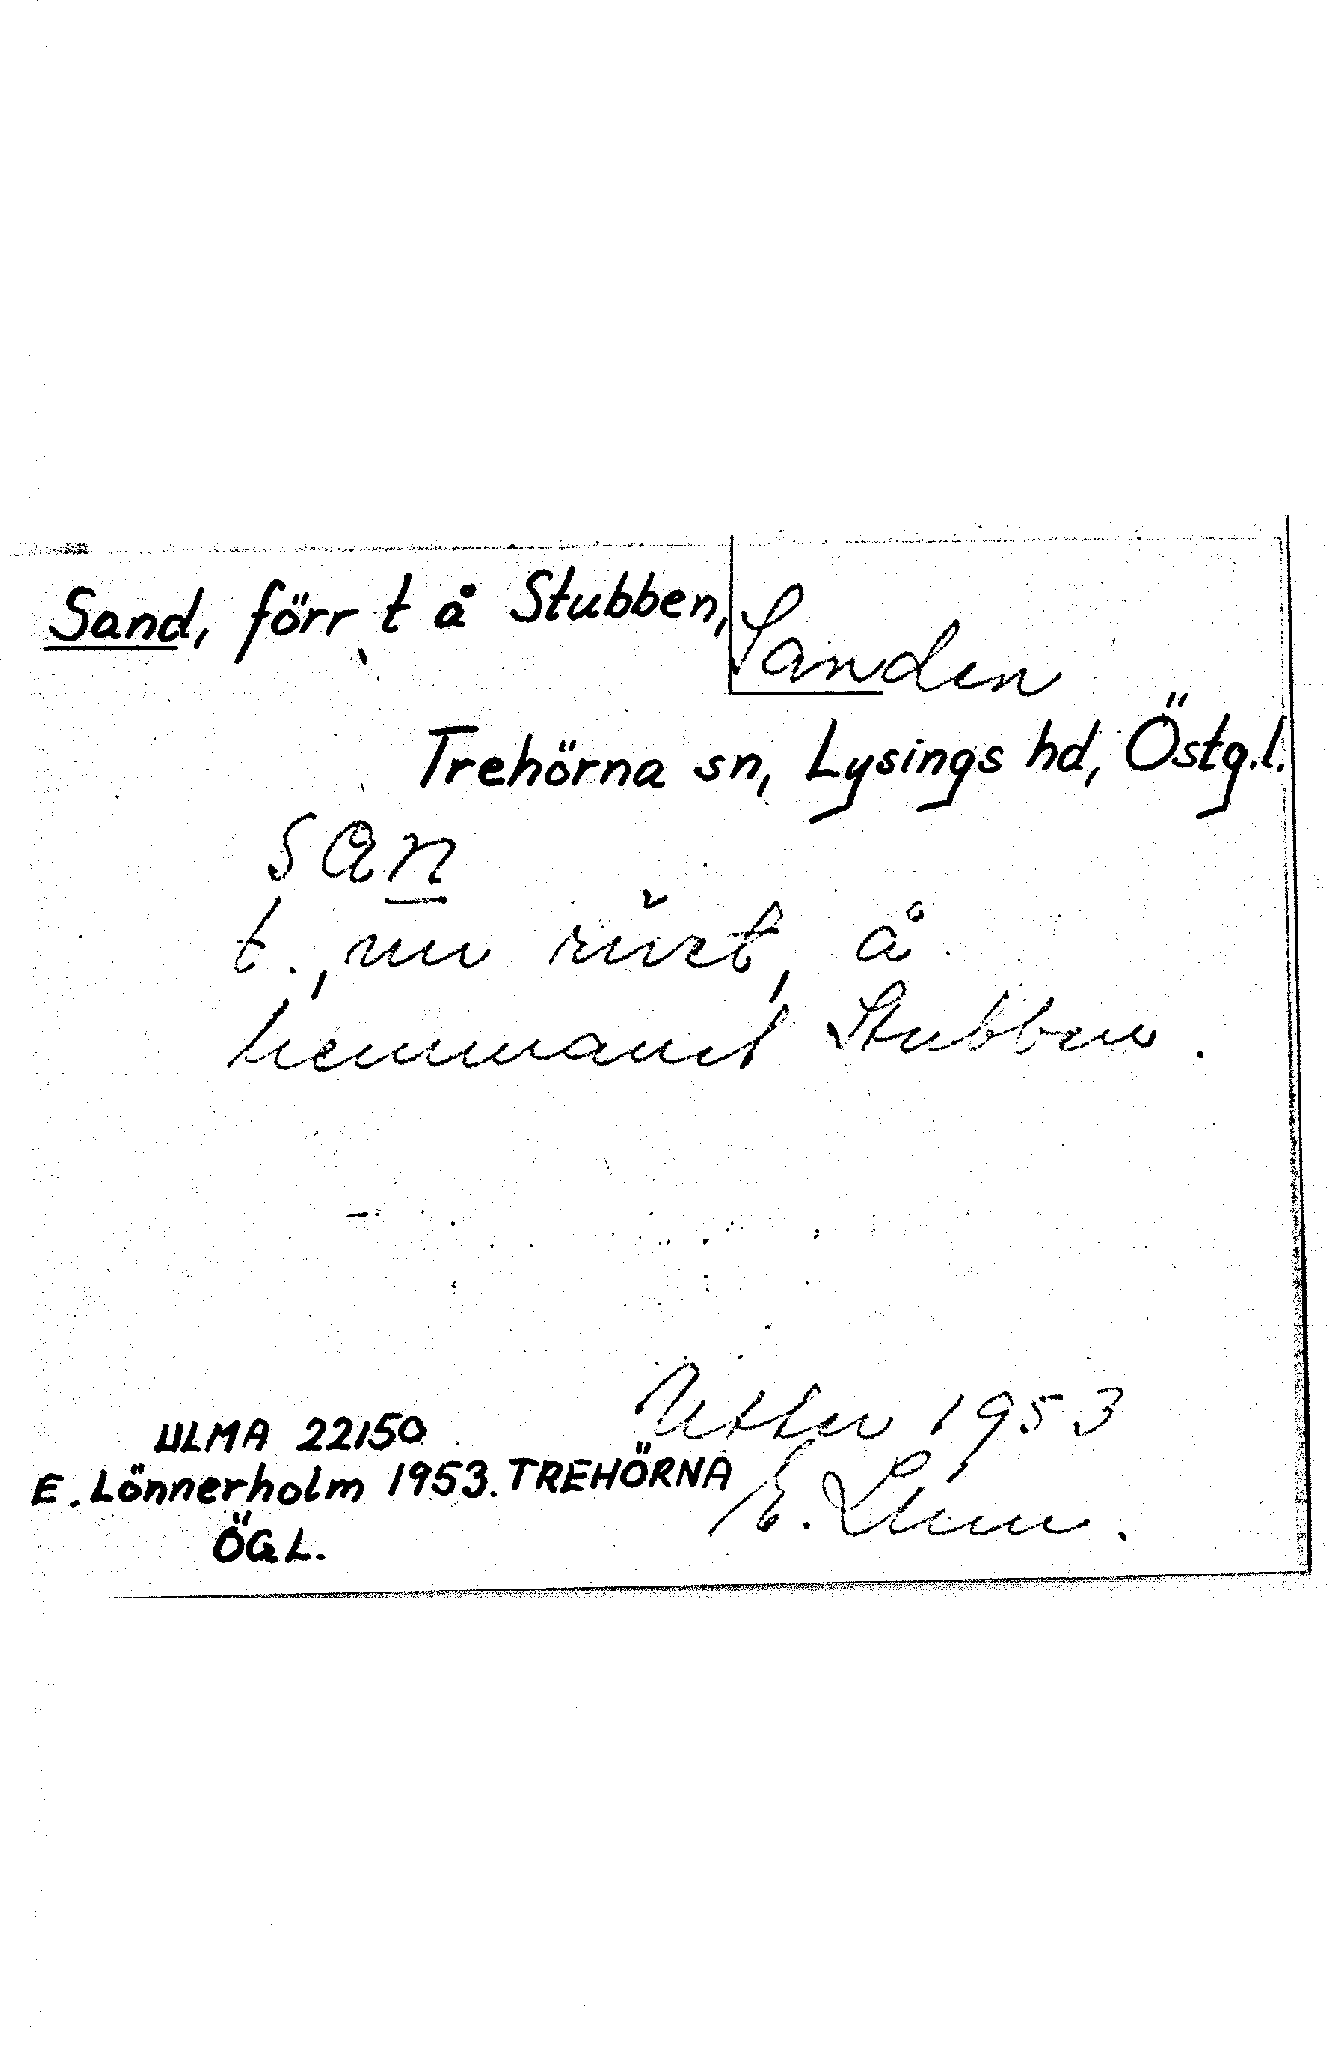 Sand, förr t å Stubben,
Sanden
Trehörna sn, Lysings hd, Östg.l.
san
t., nu rivet, å
hemmanet Stubben.
1953
ULMA 22150
E. Lönnerholm 1953. TREHÖRNA
E.
ÖGL.